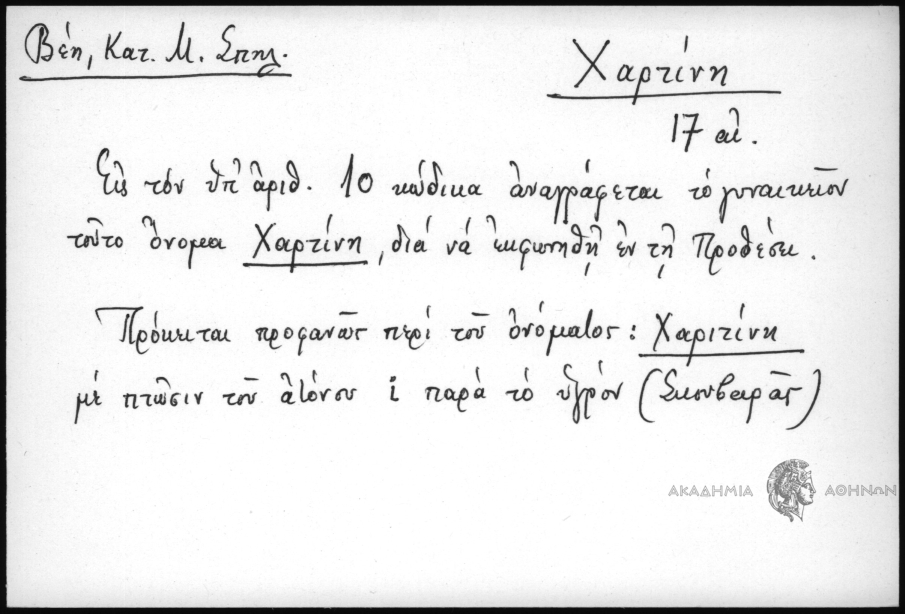 Βέη, Κατ. Μ. Σπηλ.
Χαρτίνη
17 αἰ.
Εἰς τόν ὑπ' ἀριθ. 10 κώδικα ἀναγράφεται τό γυναικεῖον
τοῦτο ὄνομα Χαρτίνη, διά νά ἐκφωνηθῇ ἐν τῇ Προθέσει.
Πρόκειται προφανῶς περί τοῦ ὀνόματος: Χαριτίνη
μέ πτῶσιν τοῦ ἀτόνου ι παρά τό ὑγρόν (Σκουβαρᾶς)
ΑΚΑΔΗΜΙΑ ΑΘΗΝΩΝ